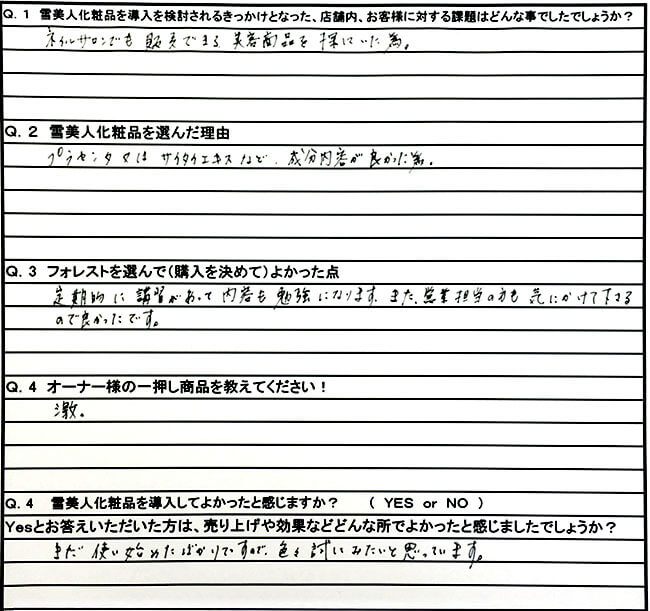 Q. 1 雪美人化粧品を導入を検討されるきっかけとなった、店舗内、お客様に対する課題はどんな事でしたでしょうか?
ネイルサロンでも販売できる美容商品を探していた為。
Q. 2 雪美人化粧品を選んだ理由
プラセンタ又はサイタイエキスなど、成分内容が良かった為。
Q. 3 フォレストを選んで(購入を決めて)よかった点
定期的に講習があって内容も勉強になります。また、営業担当の方も気にかけて下さる
ので良かったです。
Q. 4 オーナー様の一押し商品を教えてください!
激。
Q. 4 雪美人化粧品を導入してよかったと感じますか? ( YES or NO )
Yesとお答えいただいた方は、売り上げや効果などどんな所でよかったと感じましたでしょうか?
まだ使い始めたばかりですので、色々試してみたいと思っています。